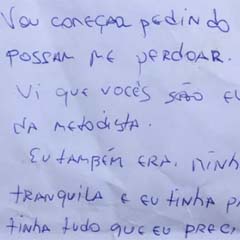 Vou começar pedindo
possam me perdoar.
Vi que vocês são
da metodista.
Eu também era. Minh
tranquila e eu tinha
tinha tudo que eu preci